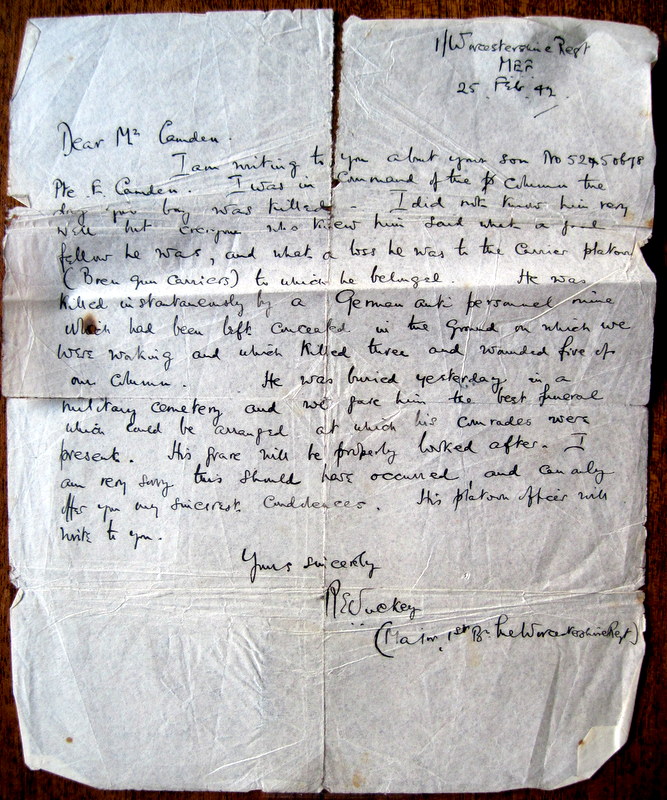 1/Worcestershire Regt
MEF
25 Feb. 42
Dear Mr Camden.
I am writing to you about your son No
Pte. E. Camden. I was in command of the column the
day your boy was killed. I did not know him very
well but everyone who knew him said what a good
fellow he was, and what a loss he was to the Carrier platoon
(Bren Gun Carriers) to which he belonged. He was
killed instantaneously by a German anti personnel mine
which had been left concealed in the ground on which we
were working and which killed three and wounded five of
our column. He was buried yesterday in a
military cemetery and we gave him the best funeral
which could be arranged at which his comrades were
present. His grave will be properly looked after. I
am very sorry this should have occurred, and can only
offer you my sincerest condolences. His platoon officer will
write to you.
Yours sincerely
(Major, 1st Bn. The Worcestershire Regt)